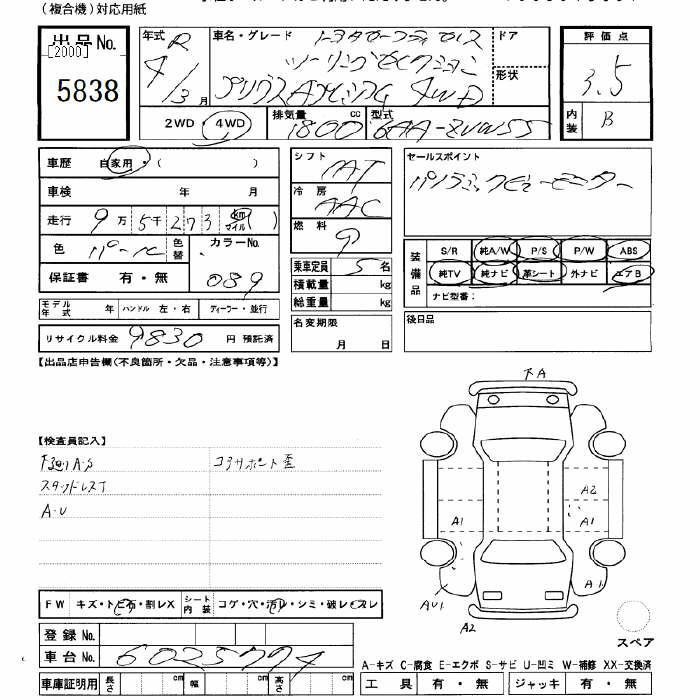 (複合機)対応用紙
出品No. [2000] 5838
年式 R 4/3月
車名・グレード トヨタカーフライセス
ツーリングセレクション
プリウスAプレミアム 4WD
ドア
形状
2WD・4WD 排気量 1800 cc 型式 6AA-ZVW55
評価点 3.5
内装 B
車歴 自家用・( )
車検 年 月
走行 9万5千273 km マイル ( )
色 パール 色替 カラーNo. 089
保証書 有・無
モデル年式 年 ハンドル 左・右 ディーラー・並行
リサイクル料金 9830 円 預託済
シフト IAT
冷房 AAC
燃料
乗車定員 5名
積載量 kg
総重量 kg
名変期限 月 日
セールスポイント
パノラミックビューモニター
装備品 S/R 純A/W P/S P/W ABS
純TV 純ナビ 革シート 外ナビ エアB
ナビ型番:
後日品
【出品店申告欄(不良箇所・欠品・注意事項等)】
【検査員記入】
下廻りA・S コアサポート歪
スタッドレスT
A・U
下A
A2
A1 A1
AU1 A1
A2
スペア
FW キズ・トビ石・割レX シート内装 コゲ・穴・汚レ・シミ・破レ・スレ
登録No.
車台No. 6025774
車庫証明用 長さ cm 幅 cm 高さ cm
A-キズ C-腐食 E-エクボ S-サビ U-凹ミ W-補修 XX-交換済
工具 有・無 ジャッキ 有・無